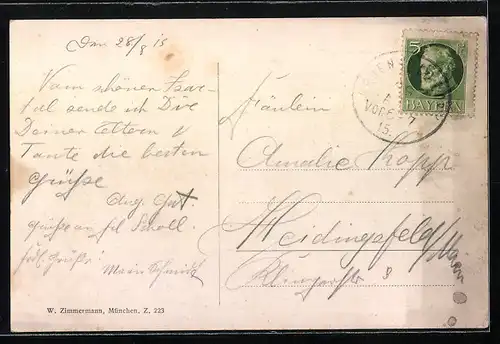 Den 28/8 15
Vom schönen Isar-
tal sende ich Dir
Deiner Eltern u
Tante die besten
Grüße
Aug. Gut
Grüße an frl Scholl
frdl. Grüße
Marie Schmitt
W. Zimmermann, München. Z. 223
5
BAYERN
VORM
7
15.
Fräulein
Amalie Kopp
Heidingsfeld
Klingerstr 8